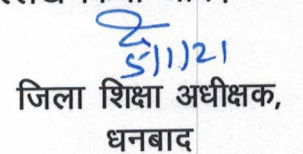 5/1/21
जिला शिक्षा अधीक्षक,
धनबाद